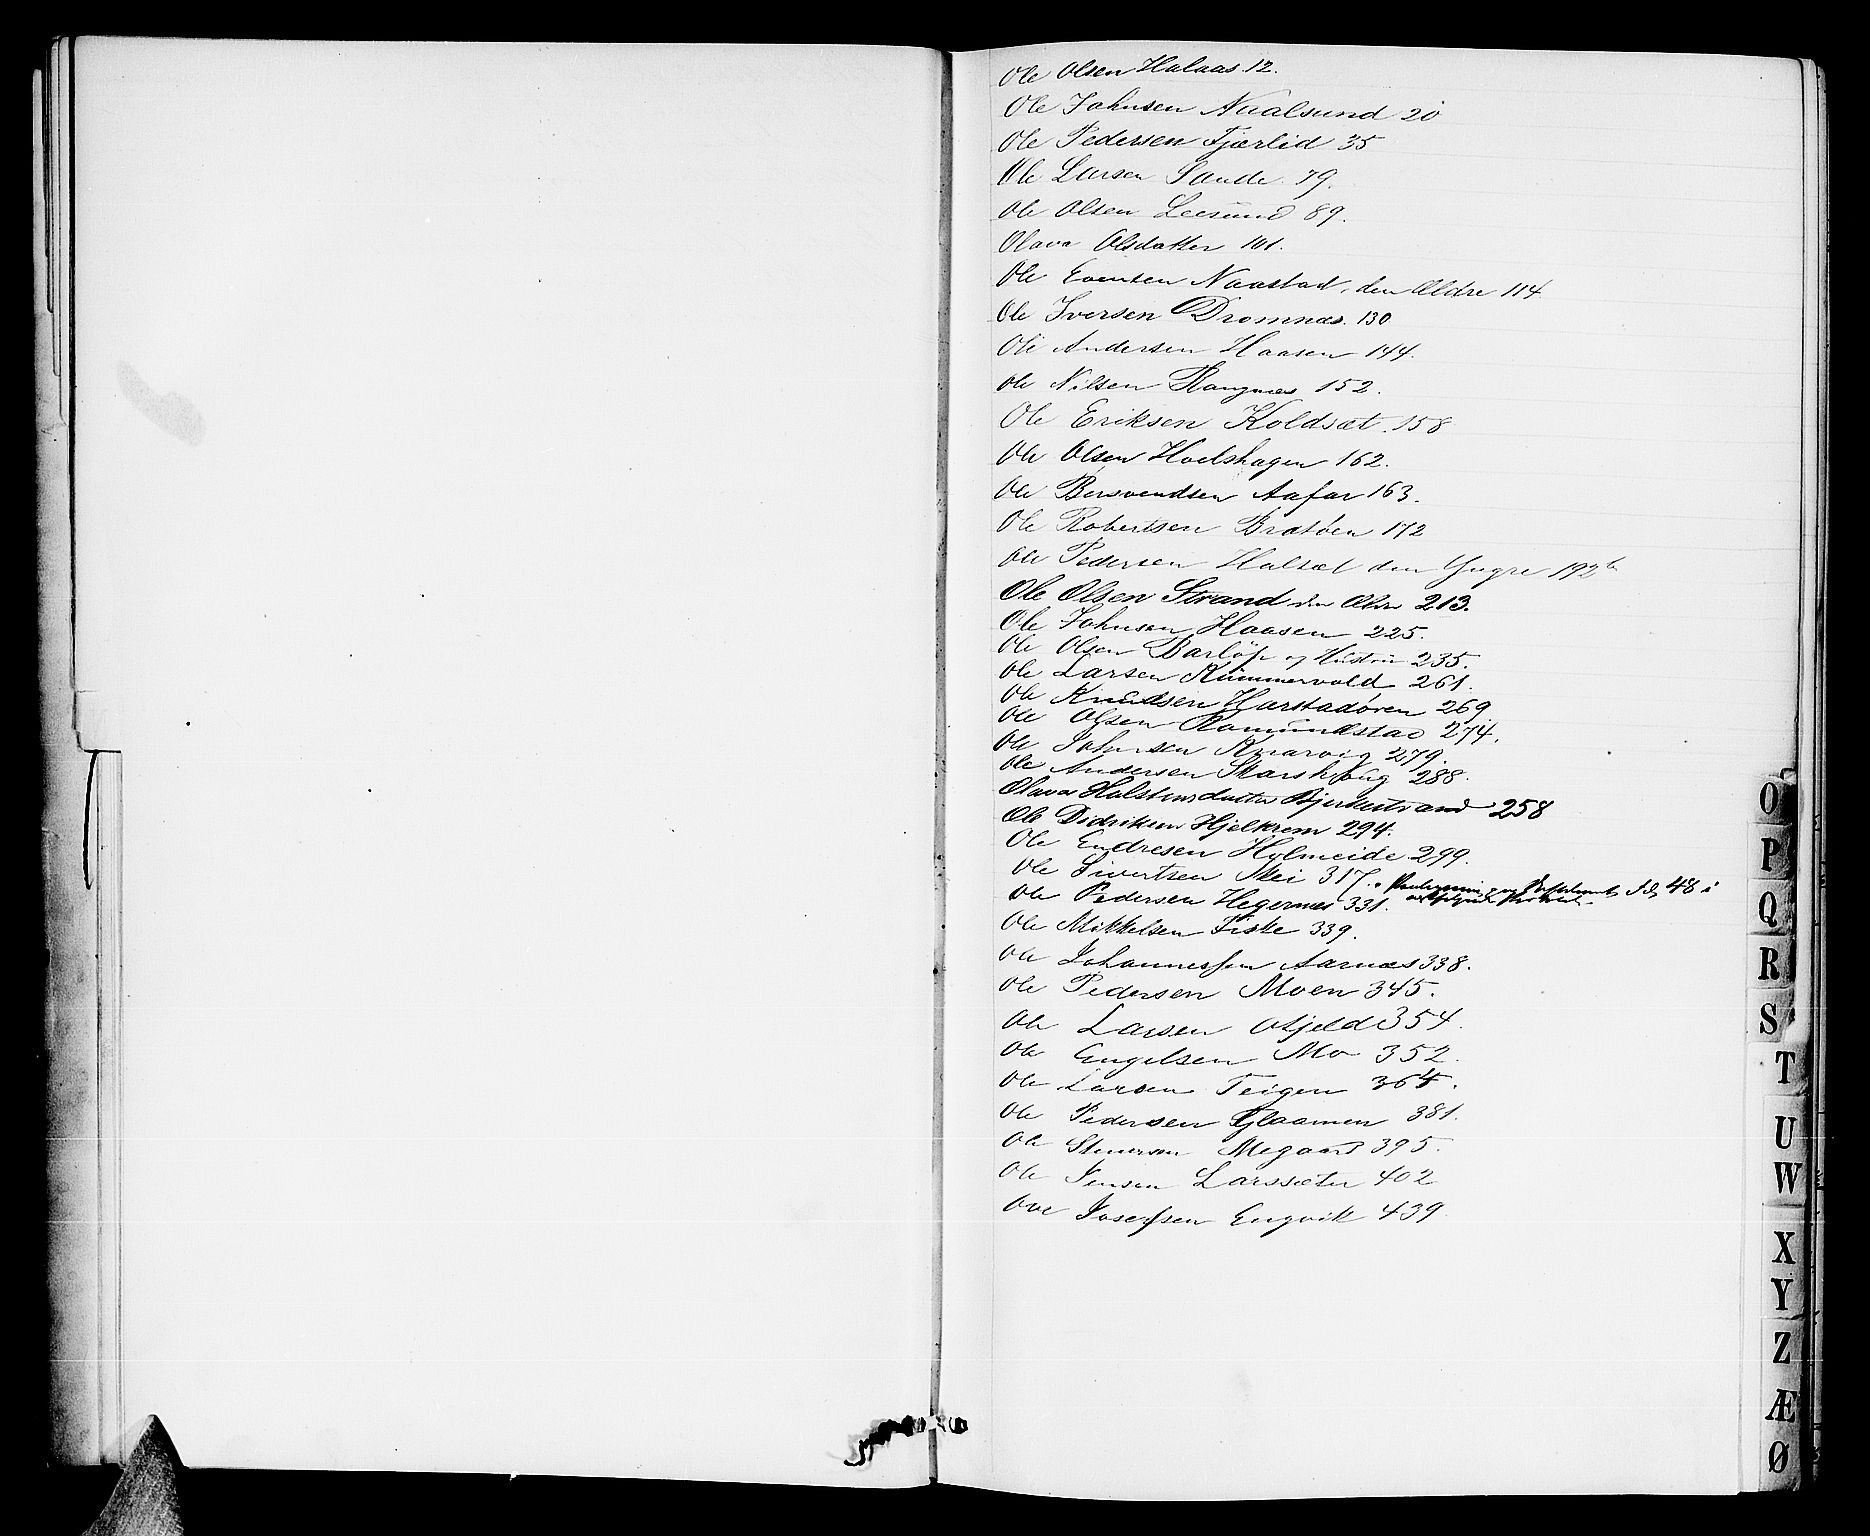 Ole Olsen Halaas. 12.
Ole Johnsen Naalsund 20
Ole Pedersen Fjærlid 35
Ole Larsen Sande. 79.
Ole Olsen Leesund 89.
Olava Olsdatter 101.
Ole Evensen Naastad, den Ældre 114
Ole Iversen Dromnæs. 130
Ole Andersen Haasen 144.
Ole Nilsen Rangnæs 152.
Ole Eriksen Koldsæt. 158
Ole Olsen Hoelshagen 162.
Ole Bersvendsen Aafar 163.
Ole Robertsen Bratøen 172
Ole Pedersen Halsæt den Yngre 192b
Ole Olsen Strand den Ældre 213.
Ole Johnsen Haasen 225.
Ole Olsen Barløp og Hustru 235.
Ole Larsen Rümmervold 261.
Ole Knudsen Harstadøren 269
Ole Olsen Romündstad 274.
Ole Johnsen Knarvig 279.
Ole Andersen Skarshoug 288.
Olava Halstensdatter Bjerkestrand 258
Ole Didriksen Hjelkrem 294.
Ole Endresen Holmeide 299.
Ole Sivertsen Mei 317.
Ole Pedersen Hegernæs 331. 48 i
Ole Mikkelsen Fiske 339.
Ole Johannessen Aarnæs 338.
Ole Pedersen Moen 345.
Ole Larsen 354.
Ole Engelsen Mo 352.
Ole Larsen Teigen 364.
Ole Pedersen Glaamen 381.
Ole Stenersen Megaard 395.
Ole Jensen Larssæter 402
Ove Josefsen Engvik 439.
O
P
Q
R
S
T
U
W
X
Y
Z
Æ
Ø